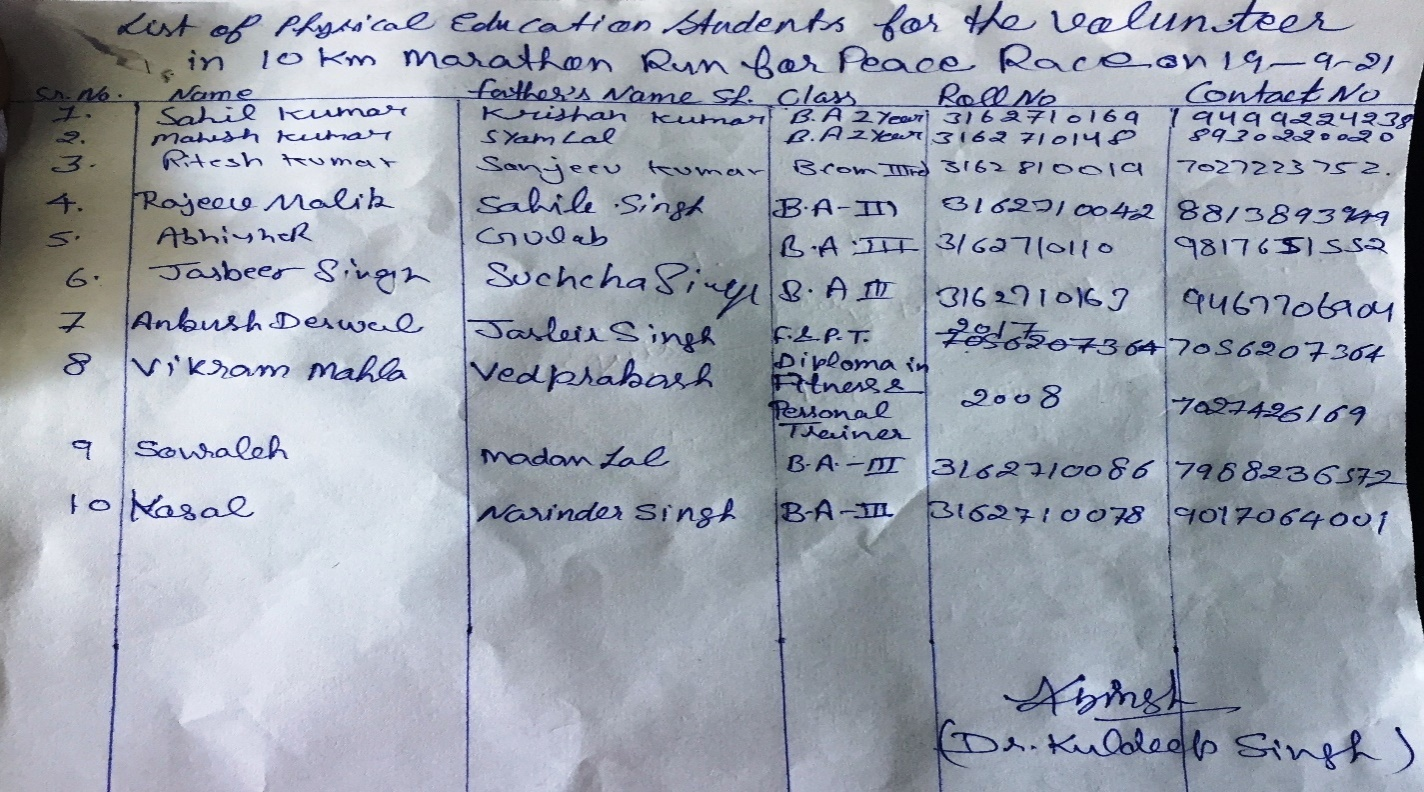 List of Physical Education Students for the volunteer
in 10 Km Marathon Run for Peace Race on 19-9-21
Sr. No. Name Father's Name Sh. Class Roll No Contact No
1. Sahil Kumar Krishan Kumar B.A 2 Year 3162710169 9499224238
2. Mahesh Kumar Syam Lal B.A 2 Year 3162710148 8930220020
3. Ritesh Kumar Sanjeev Kumar Bcom IIIrd 3162810019 7027223752.
4. Rajeev Malik Sahile Singh B.A-III 3162710042 8813893949
5. Abhishek Gulab B.A III 3162710110 9817651552
6. Jasbeer Singh Suchcha Singh B.A III 3162710163 9467706904
7 Ankush Deswal Jasleir Singh F.&.P.T. 2017 7056207364 7056207364
8 Vikram Mahla Vedprakash Diploma in
Fitness &
Personal
Trainer 2008 7027426169
9 Souraleh Madan Lal B.A.-III 3162710086 7988236572
10 Kasal Narinder Singh B-A-III 3162710078 9017064001
(Dr. Kuldeep Singh)